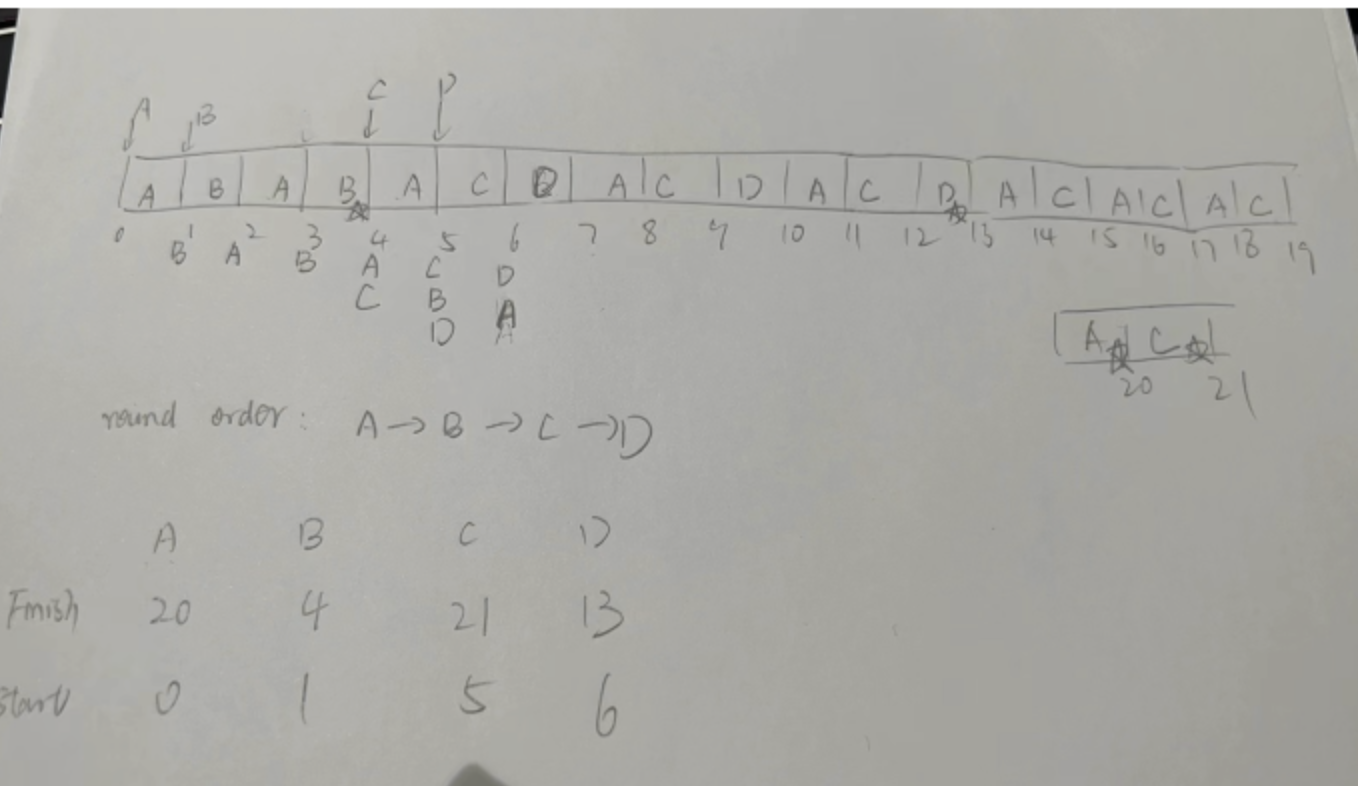 A B C P
A B A B A C D A C D A C D A C A C A C
0 1 2 3 4 5 6 7 8 9 10 11 12 13 14 15 16 17 18 19
B A B A C D
C B A
D A
A C
20 21
round order: A → B → C → D
A B C D
Finish 20 4 21 13
Start 0 1 5 6